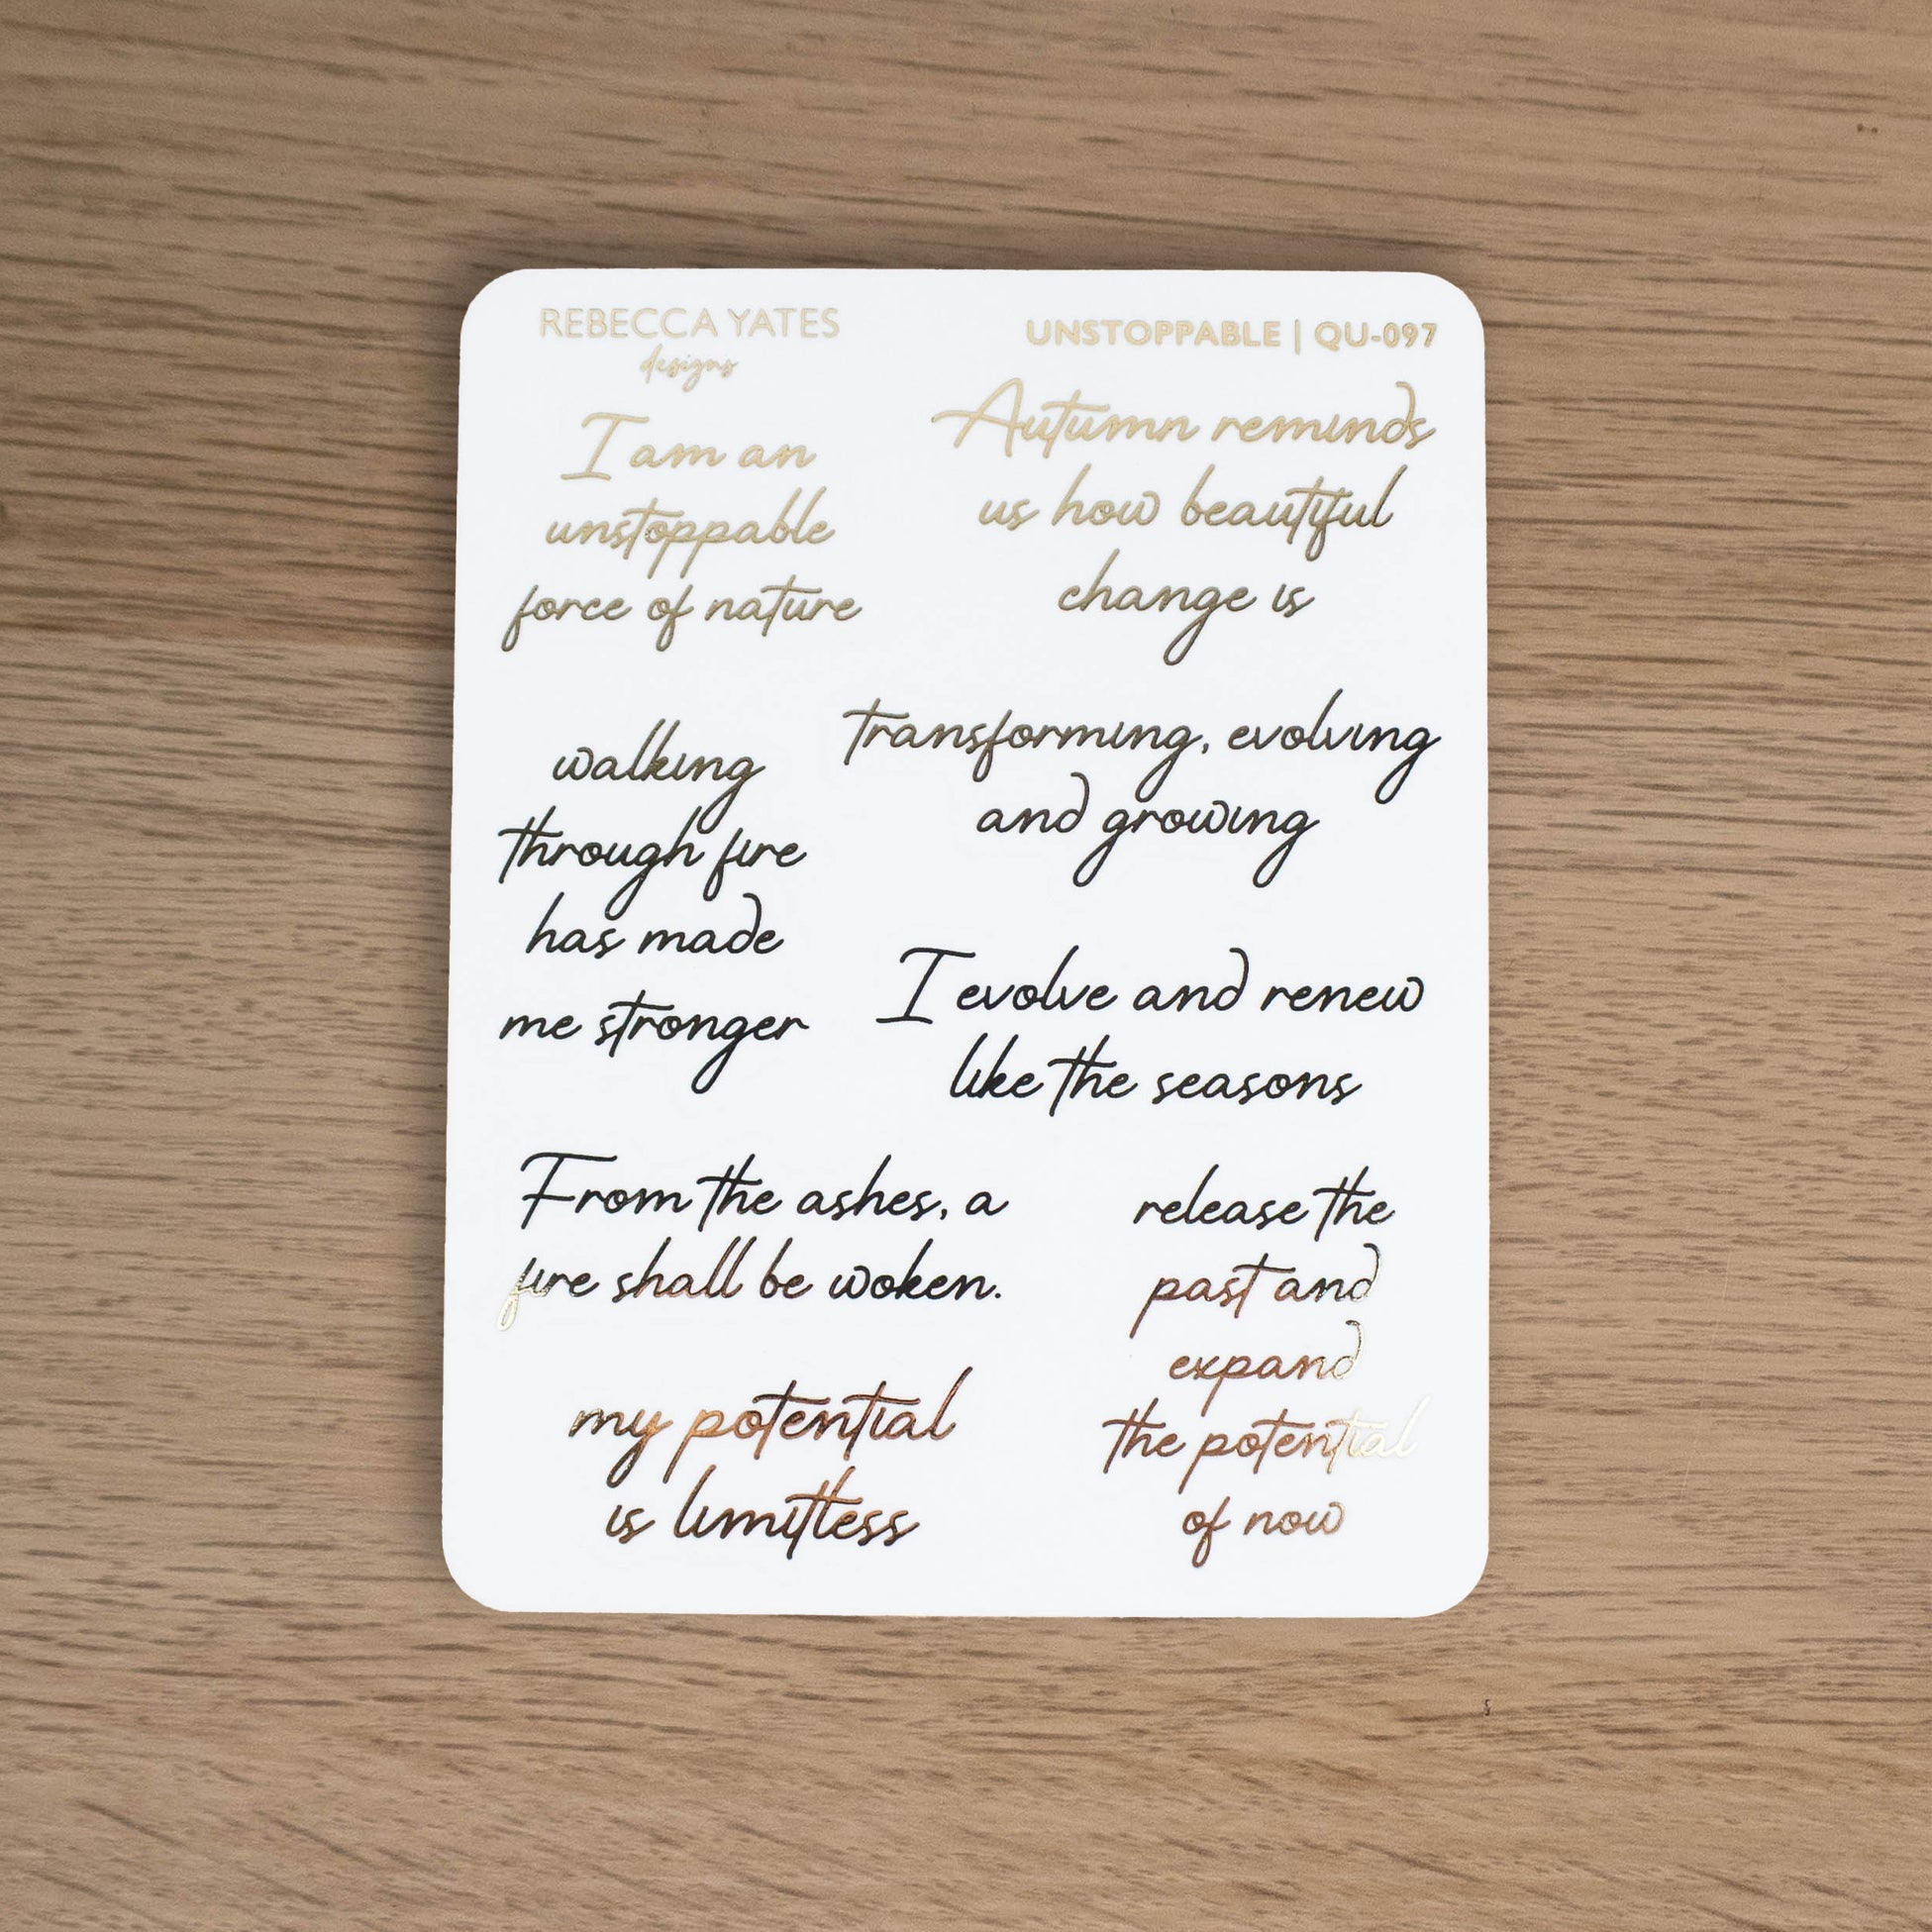 REBECCA YATES
designs
UNSTOPPABLE | QU-097
I am an
unstoppable
force of nature
Autumn reminds
us how beautiful
change is
walking
through fire
has made
me stronger
transforming, evolving
and growing
I evolve and renew
like the seasons
From the ashes, a
fire shall be woken.
release the
past and
expand
the potential
of now
my potential
is limitless